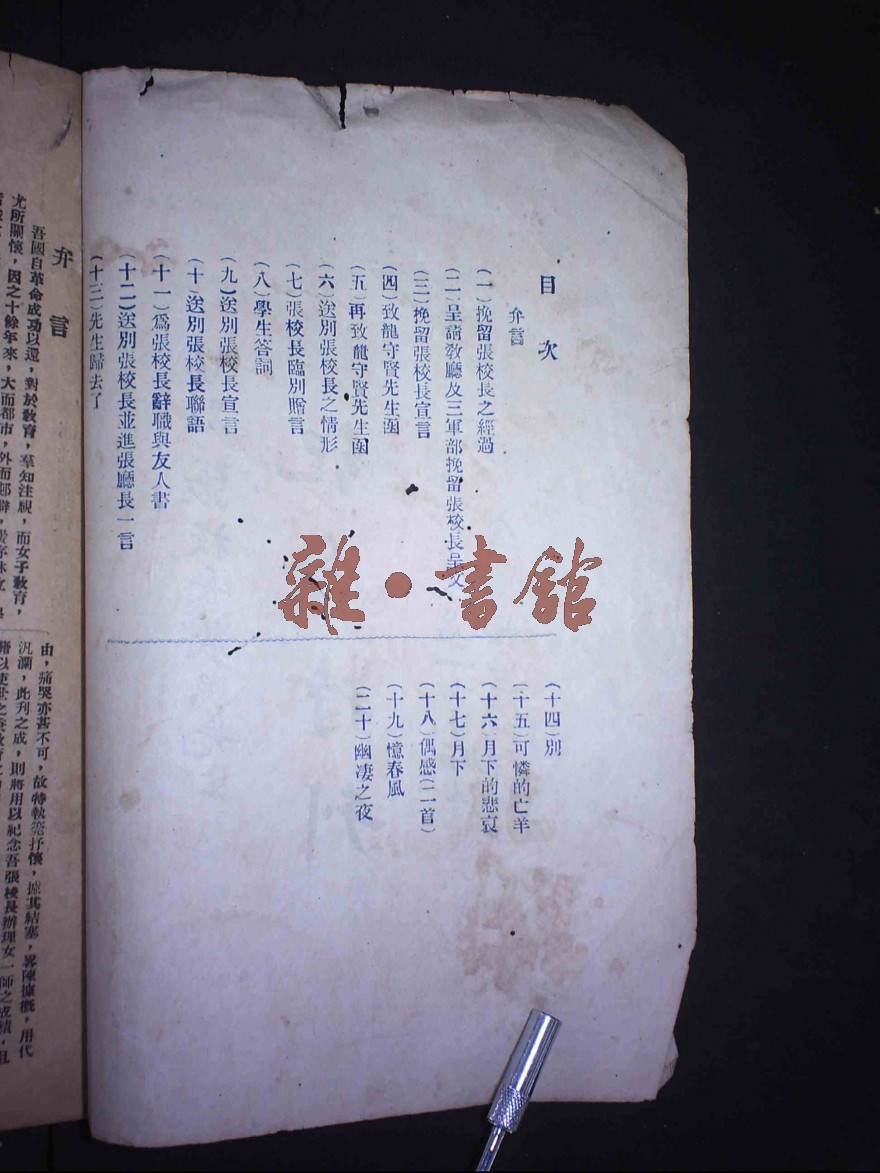 目次
弁言
(一)挽留張校長之經過
(二)呈請敎廳及三軍部挽留張校長呈文
(三)挽留張校長宣言
(四)致龍守賢先生函
(五)再致龍守賢先生函
(六)送別張校長之情形
(七)張校長臨別贈言
(八)學生答詞
(九)送別張校長宣言
(十)送別張校長聯語
(十一)爲張校長辭職與友人書
(十二)送別張校長並進張廳長一言
(十三)先生歸去了
(十四)別
(十五)可憐的亡羊
(十六)月下的悲哀
(十七)月下
(十八)偶感(二首)
(十九)憶春風
(二十)幽凄之夜
雜·書館
弁言
吾國自革命成功以還,對於敎育,羣知注視,而女子敎育,
尤所關懷,因之十餘年來,大而都市,外而邨僻,
由,痛哭亦甚不可,故特執筆抒懷,攄其結塞,畧陳慷慨,用代
汎瀾,此刊之成,則將用以紀念吾張校長辦理女一師之成績,且